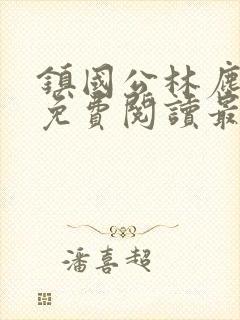 鎮國公林鹿
免費閱讀最
潘喜超